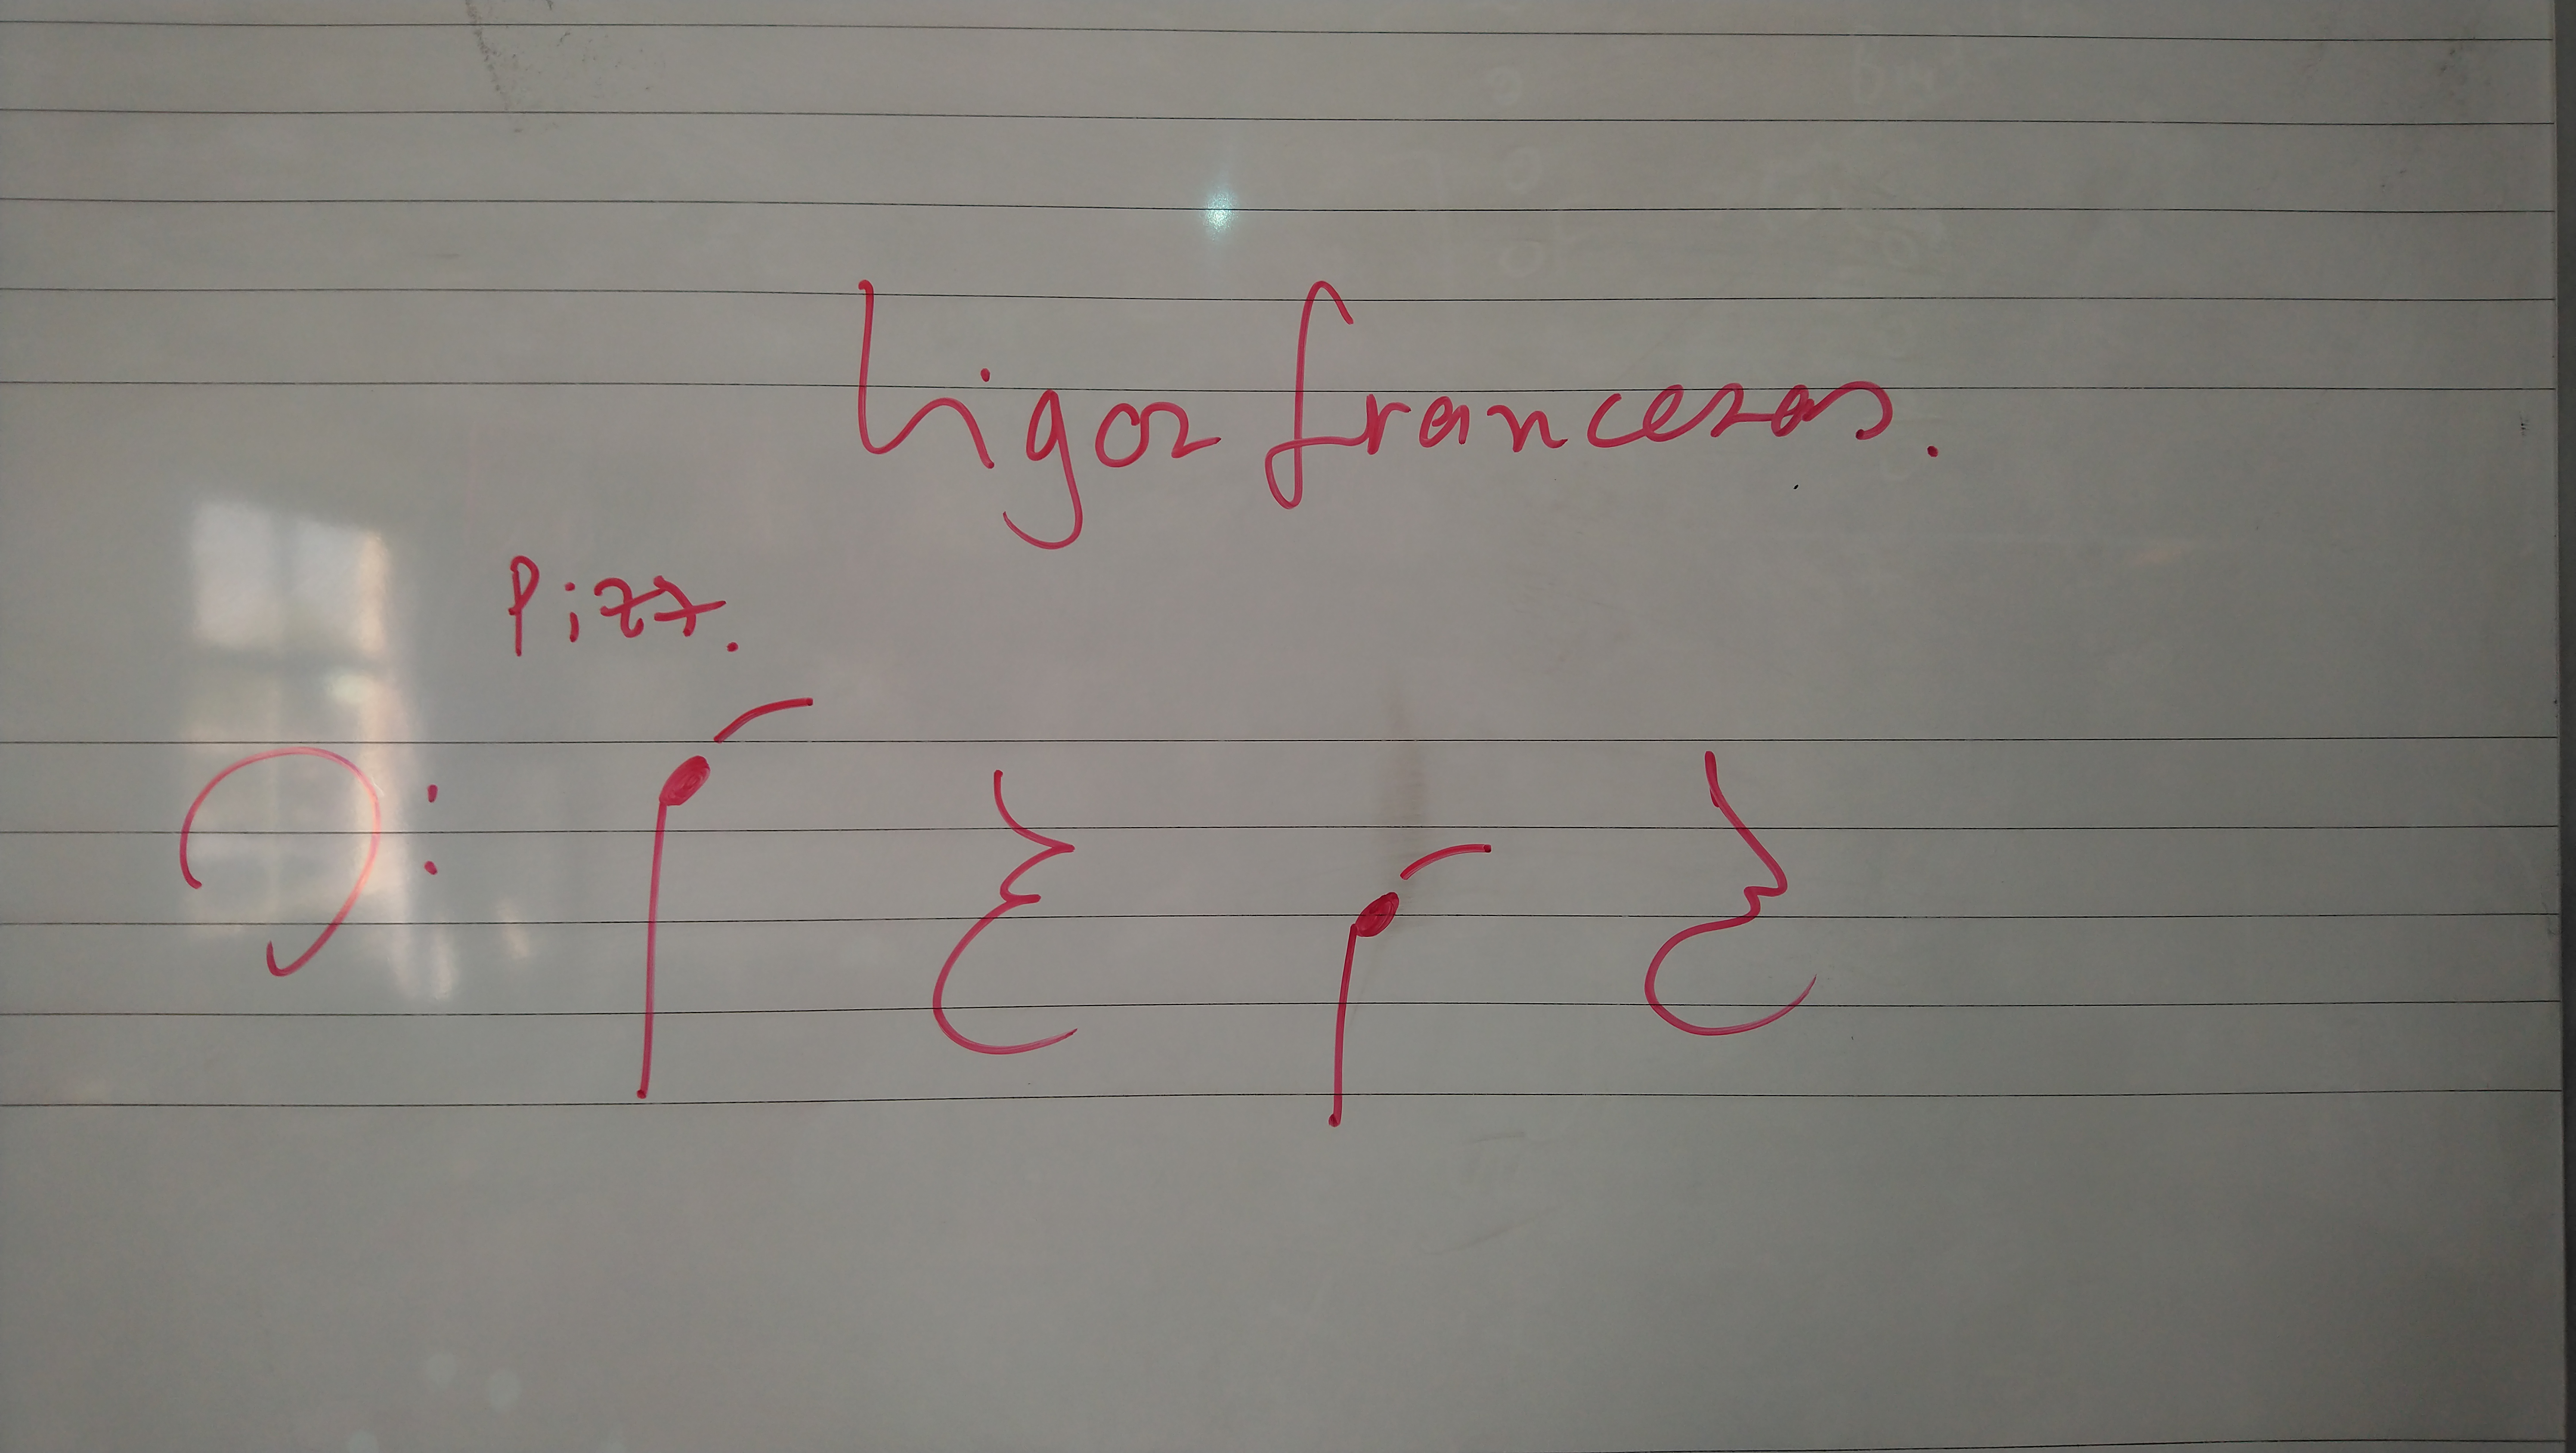 ligas francesas.
Pizz.